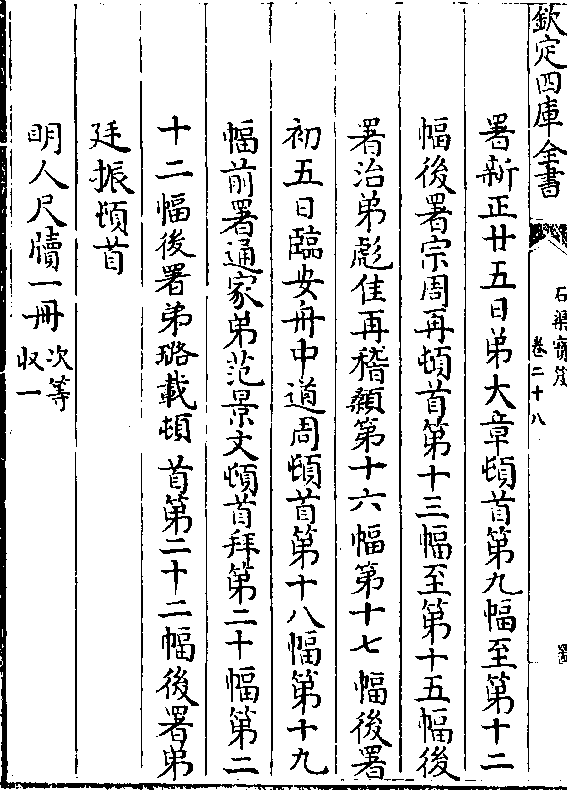 欽定四庫全書
石渠寶笈
卷二十八
署新正廿五日弟大章頓首第九幅至第十二
幅後署宗周再頓首第十三幅至第十五幅後
署治弟彪佳再稽顙第十六幅第十七幅後署
初五日臨安舟中道周頓首第十八幅第十九
幅前署通家弟范景文頓首拜第二十幅第二
十二幅後署弟璐載頓首第二十二幅後署弟
廷振頓首
明人尺牘一冊次等
收一